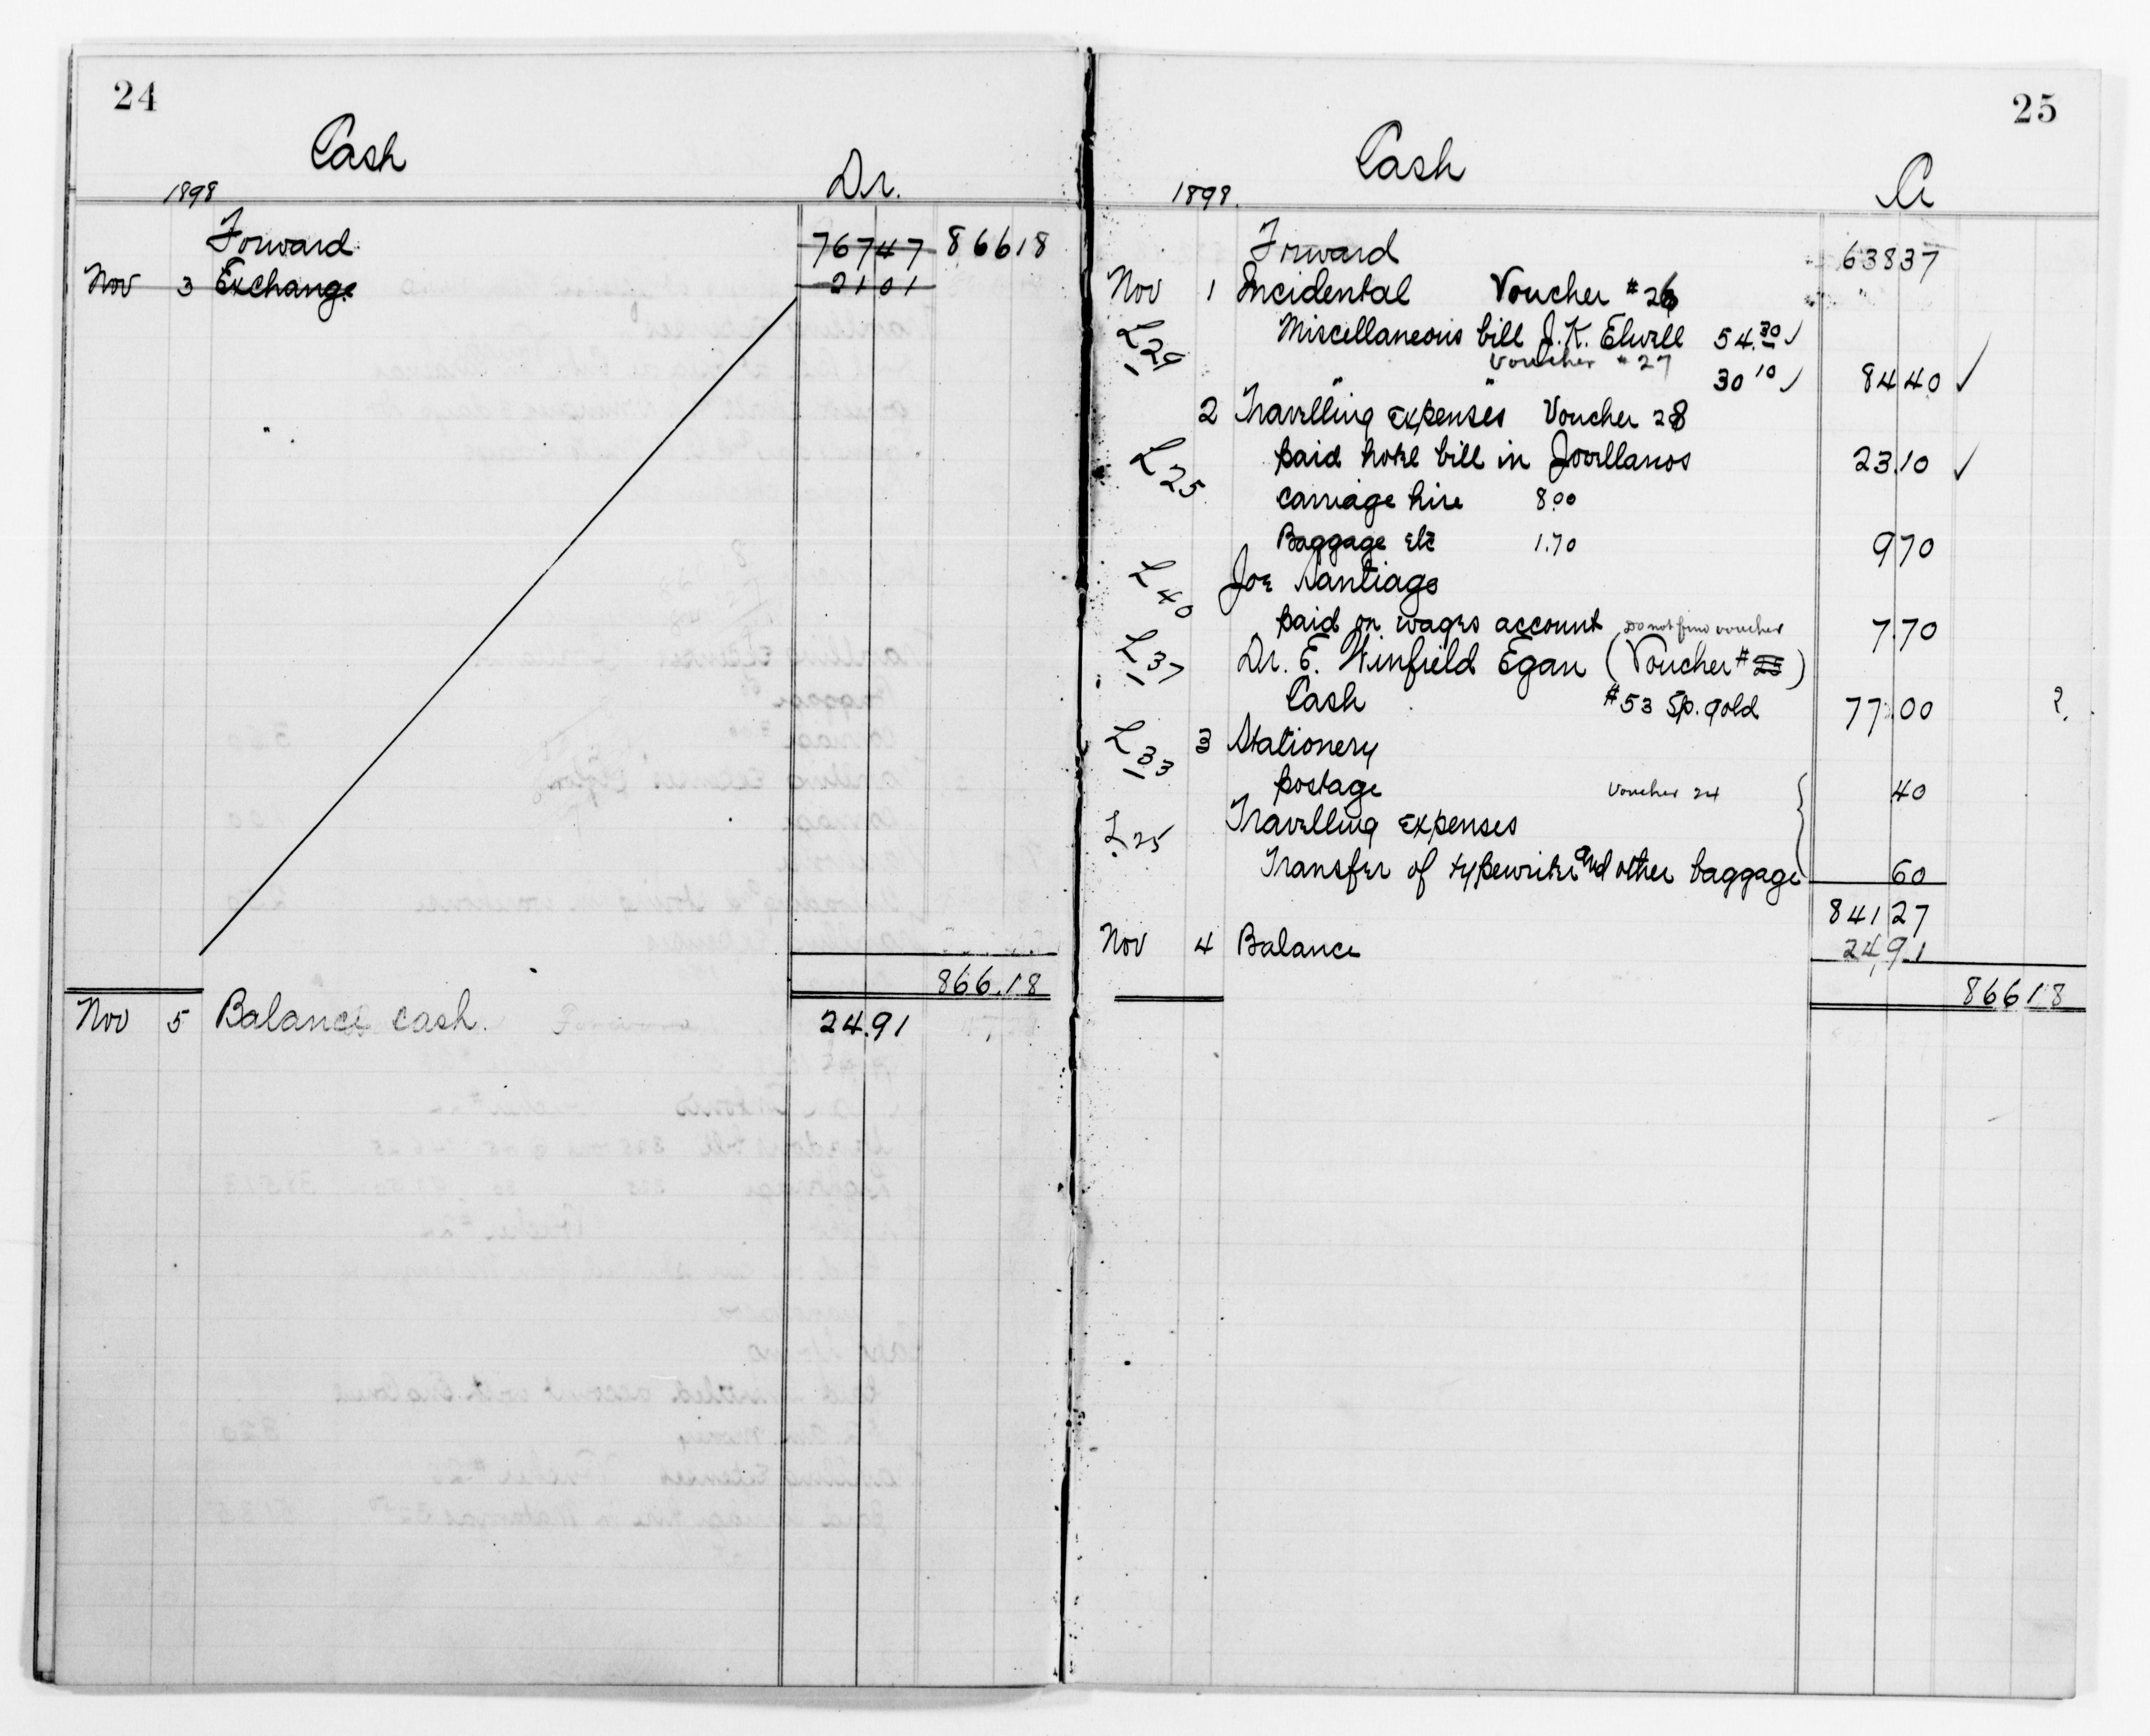 24
Cash
1898 Dr.
Forward 767 47 866 18
Nov 3 Exchange 21 01
866.18
Nov 5 Balance cash. 24.91
25
Cash
1898. Cr
Forward 638 37
Nov 1 Incidental Voucher #26
L29 Miscellaneous bill J. K. Elwell 54.30 ✓
Voucher #27
" " 30 10 ✓ 84 40 ✓
2 Travelling expenses Voucher 28
L25 paid hotel bill in Jovellanos 23.10 ✓
carriage hire 8.00
Baggage etc 1.70 9 70
L40 Joe Santiago
paid on wages account Do not find voucher 7 70
L37 Dr. E. Winfield Egan (Voucher # )
Cash #53 Sp. gold 77 00 ?.
L33 3 Stationery
postage Voucher 24 40
L25 Travelling expenses
Transfer of typewriter and other baggage 60
841 27
Nov 4 Balance 24,91
866 18